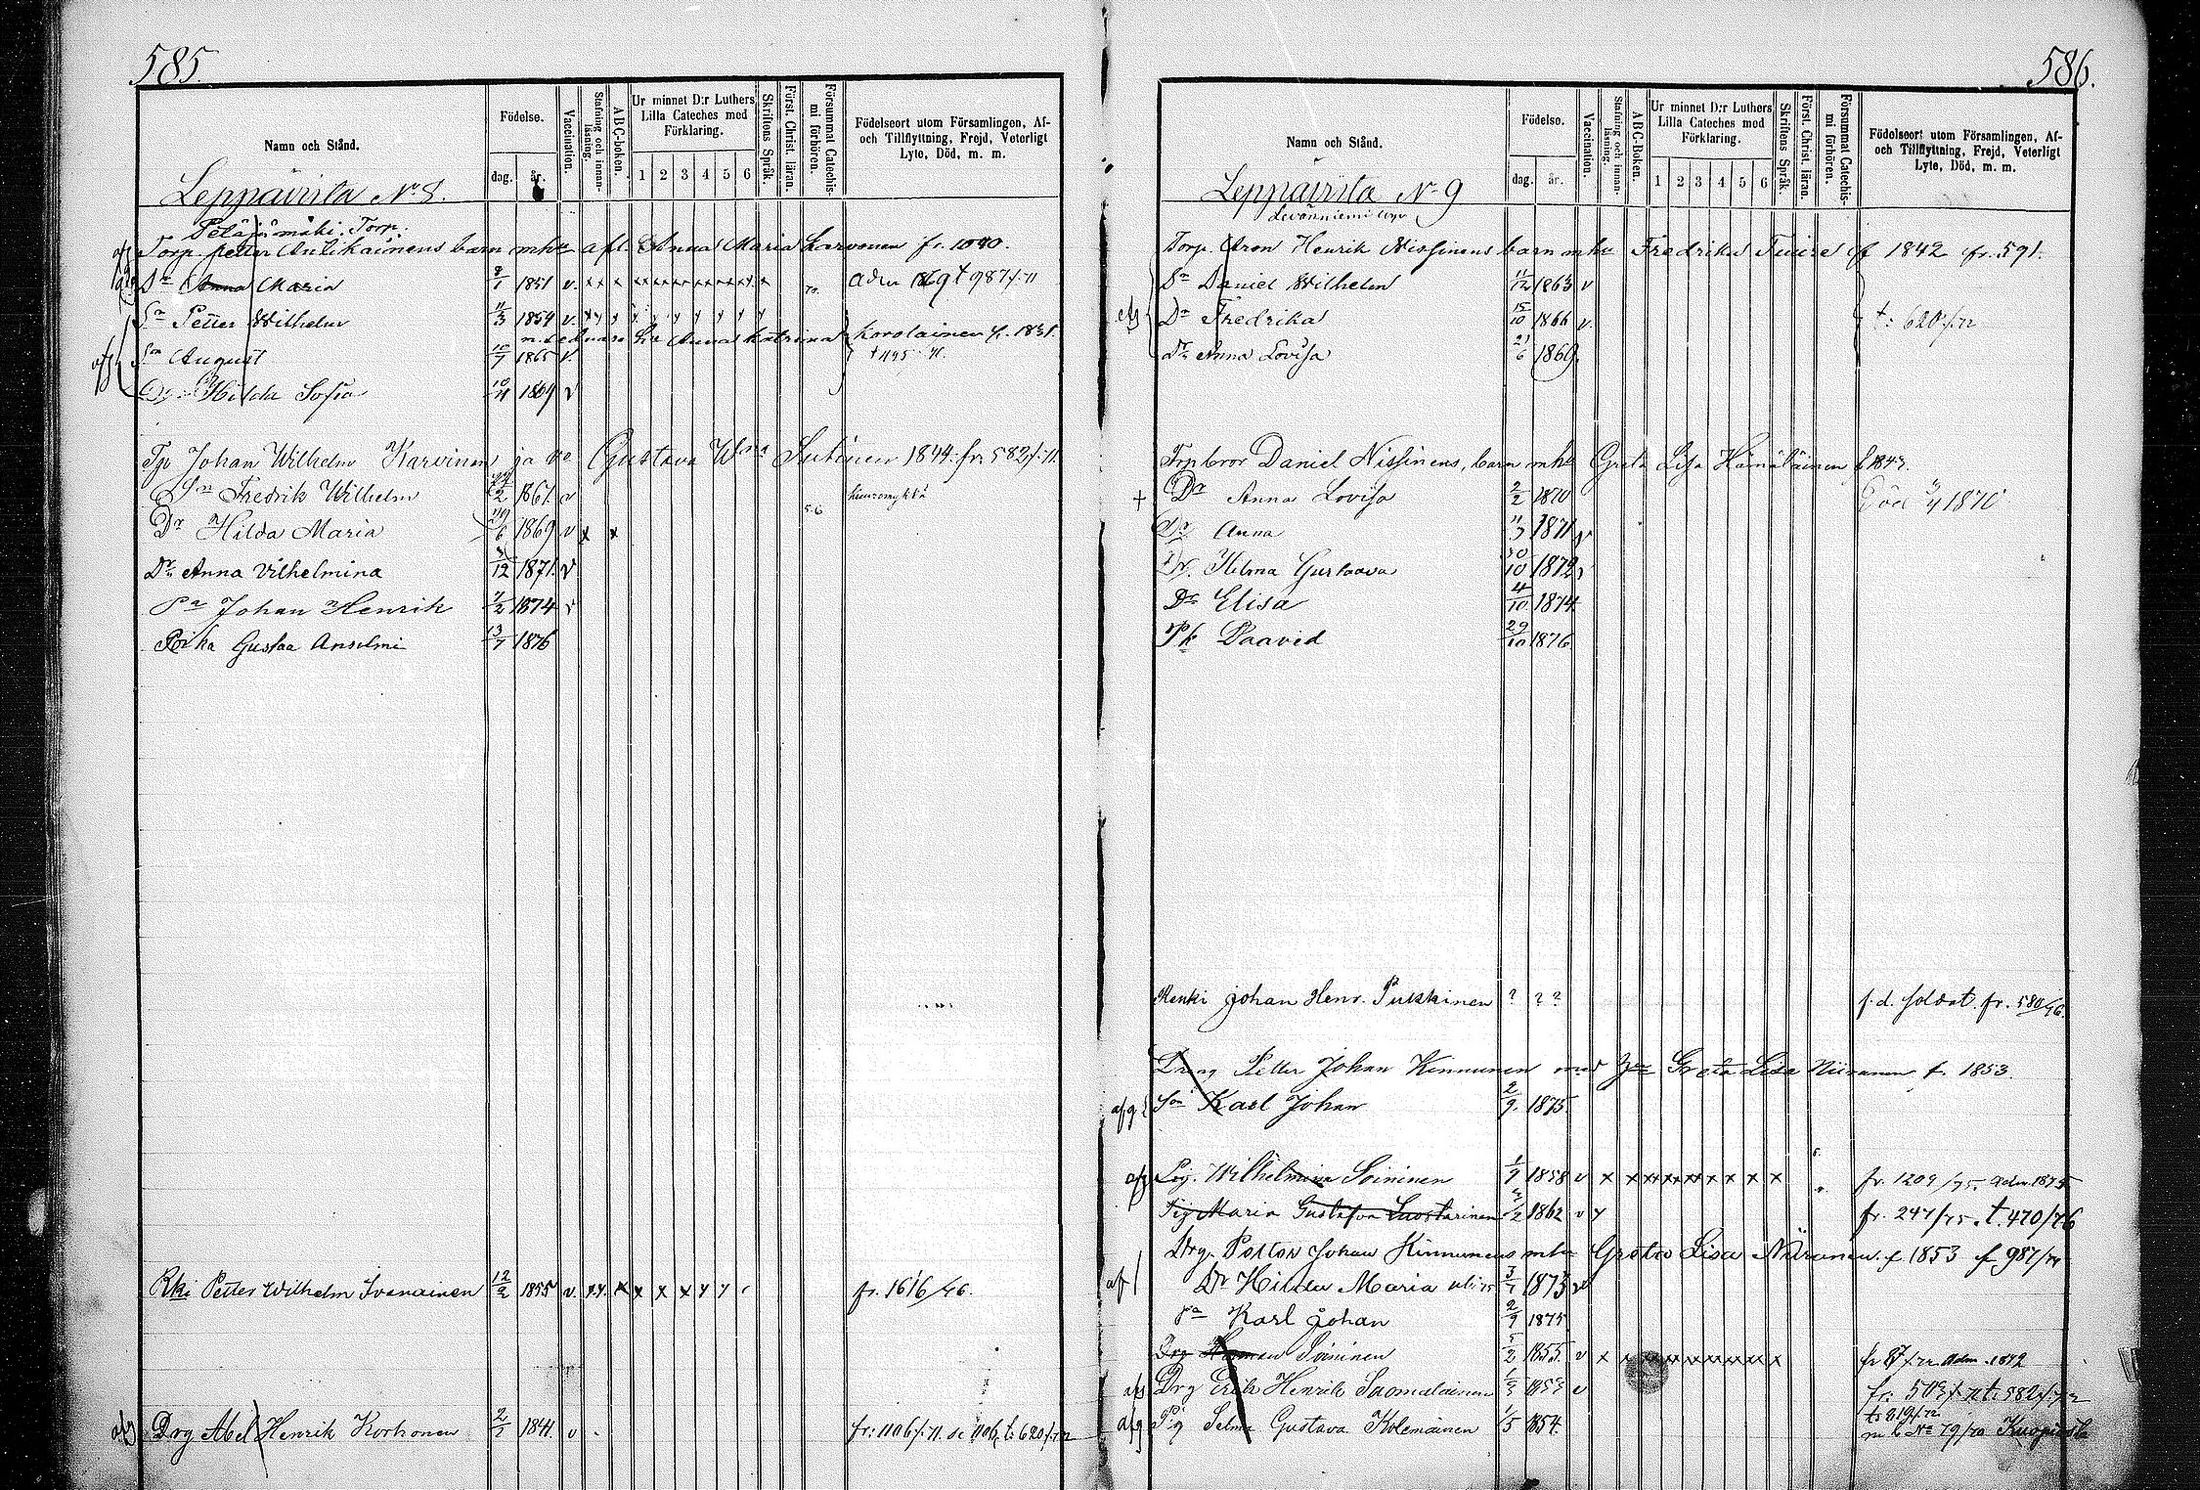 585.
Namn och Stånd.
Födelse.
dag. år.
Vaccination.
Stafning och innanläsning.
ABC-boken.
Ur minnet D:r Luthers Lilla Cateches med Förklaring.
1 2 3 4 5 6
Skriftens Språk.
Först. Christ. läran.
Försummat Catechismi förhören.
Födelseort utom Församlingen, Af- och Tillflyttning, Frejd, Veterligt Lyte, Död, m. m.
Leppävirta No 8.
Petäjämäki. Torp.
Torp. Petter Antikainens barn mhu afl. Anna Maria Karvonen fr. 1040.
Dr Anna Maria 1851 v. x x x x x x x x x
Sn Petter Wilhelm 11/3 1854 v.
Anna Katrina Korolainen f. 1851.
Sn August 10/7 1865 v.
Dr Hilda Sofia 1869 v
Tp Johan Wilhelm Karvinen ja vo Gustava Wma Sutinen 1844. fr. 582/. 71.
Sn Fredrik Wilhelm 1867 v
Dr Hilda Maria 1869 v x x
Dr Anna Vilhelmina 12 1871. v
Pa Johan Henrik 1874 v
Poika Gustaa Anselmi 13/7 1876
Rki Petter Wilhelm Ivanainen 12/2 1855 v. fr. 1616/76.
afg Drg Abel Henrik Korhonen 1841. v fr: 1106/. 71. t. 620/. 72
586.
Namn och Stånd.
Födelse.
dag. år.
Vaccination.
Stafning och innanläsning.
ABC-Boken.
Ur minnet D:r Luthers Lilla Cateches med Förklaring.
1 2 3 4 5 6
Skriftens Språk.
Först. Christ. läran.
Försummat Catechismi förhören.
Födelseort utom Församlingen, Af- och Tillflyttning, Frejd, Veterligt Lyte, Död, m. m.
Leppävirta No 9
Torp. Aron Henrik Nissinens barn mhu Fredrika f 1842 fr. 591.
Sn Daniel Wilhelm 11/12 1863 v
Dr Fredrika 15/10 1866 v. t: 620/. 72
Dr Anna Lovisa 21/6 1869.
Torpbror Daniel Nissinens, barn mhu Greta Lisa Hämäläinen f. 1843.
+ Dr Anna Lovisa 2/2 1870 Död 1870
Dr Anna 11/3 1871 v
Dr. Hilma Gustaava 30/10 1872 v
Dr Elisa 4/10 1874
Pk Daavid 29/10 1876
Renki Johan Henr. Pukkinen ? ? ? f. d. soldat. fr. 580/76.
Dräng Petter Johan Kinnunen med Greta Lisa Niiranen f. 1853.
afg Son Karl Johan 2/9. 1875
afg Wilhelmina Soininen 1/9 1858 v x x x x x x x x fr. 1209/75. adm. 1875
Pig Maria Gustafva Luostarinen 1862 v fr. 247/75. t. 470/76
Drg. Petter Johan Kinnunens mhu Greta Lisa Niiranen f 1853 987/74
Dr Hilda Maria 1873 v
Pa Karl Johan 2/9 1875
Drg Herman Soininen 5/2 1855. v x x x x x x x x fr adm. 1872
afg Drg Erik Henrik Suomalainen 1853 v
afg Pig Selma Gustava Kolemainen 1/5 1854.